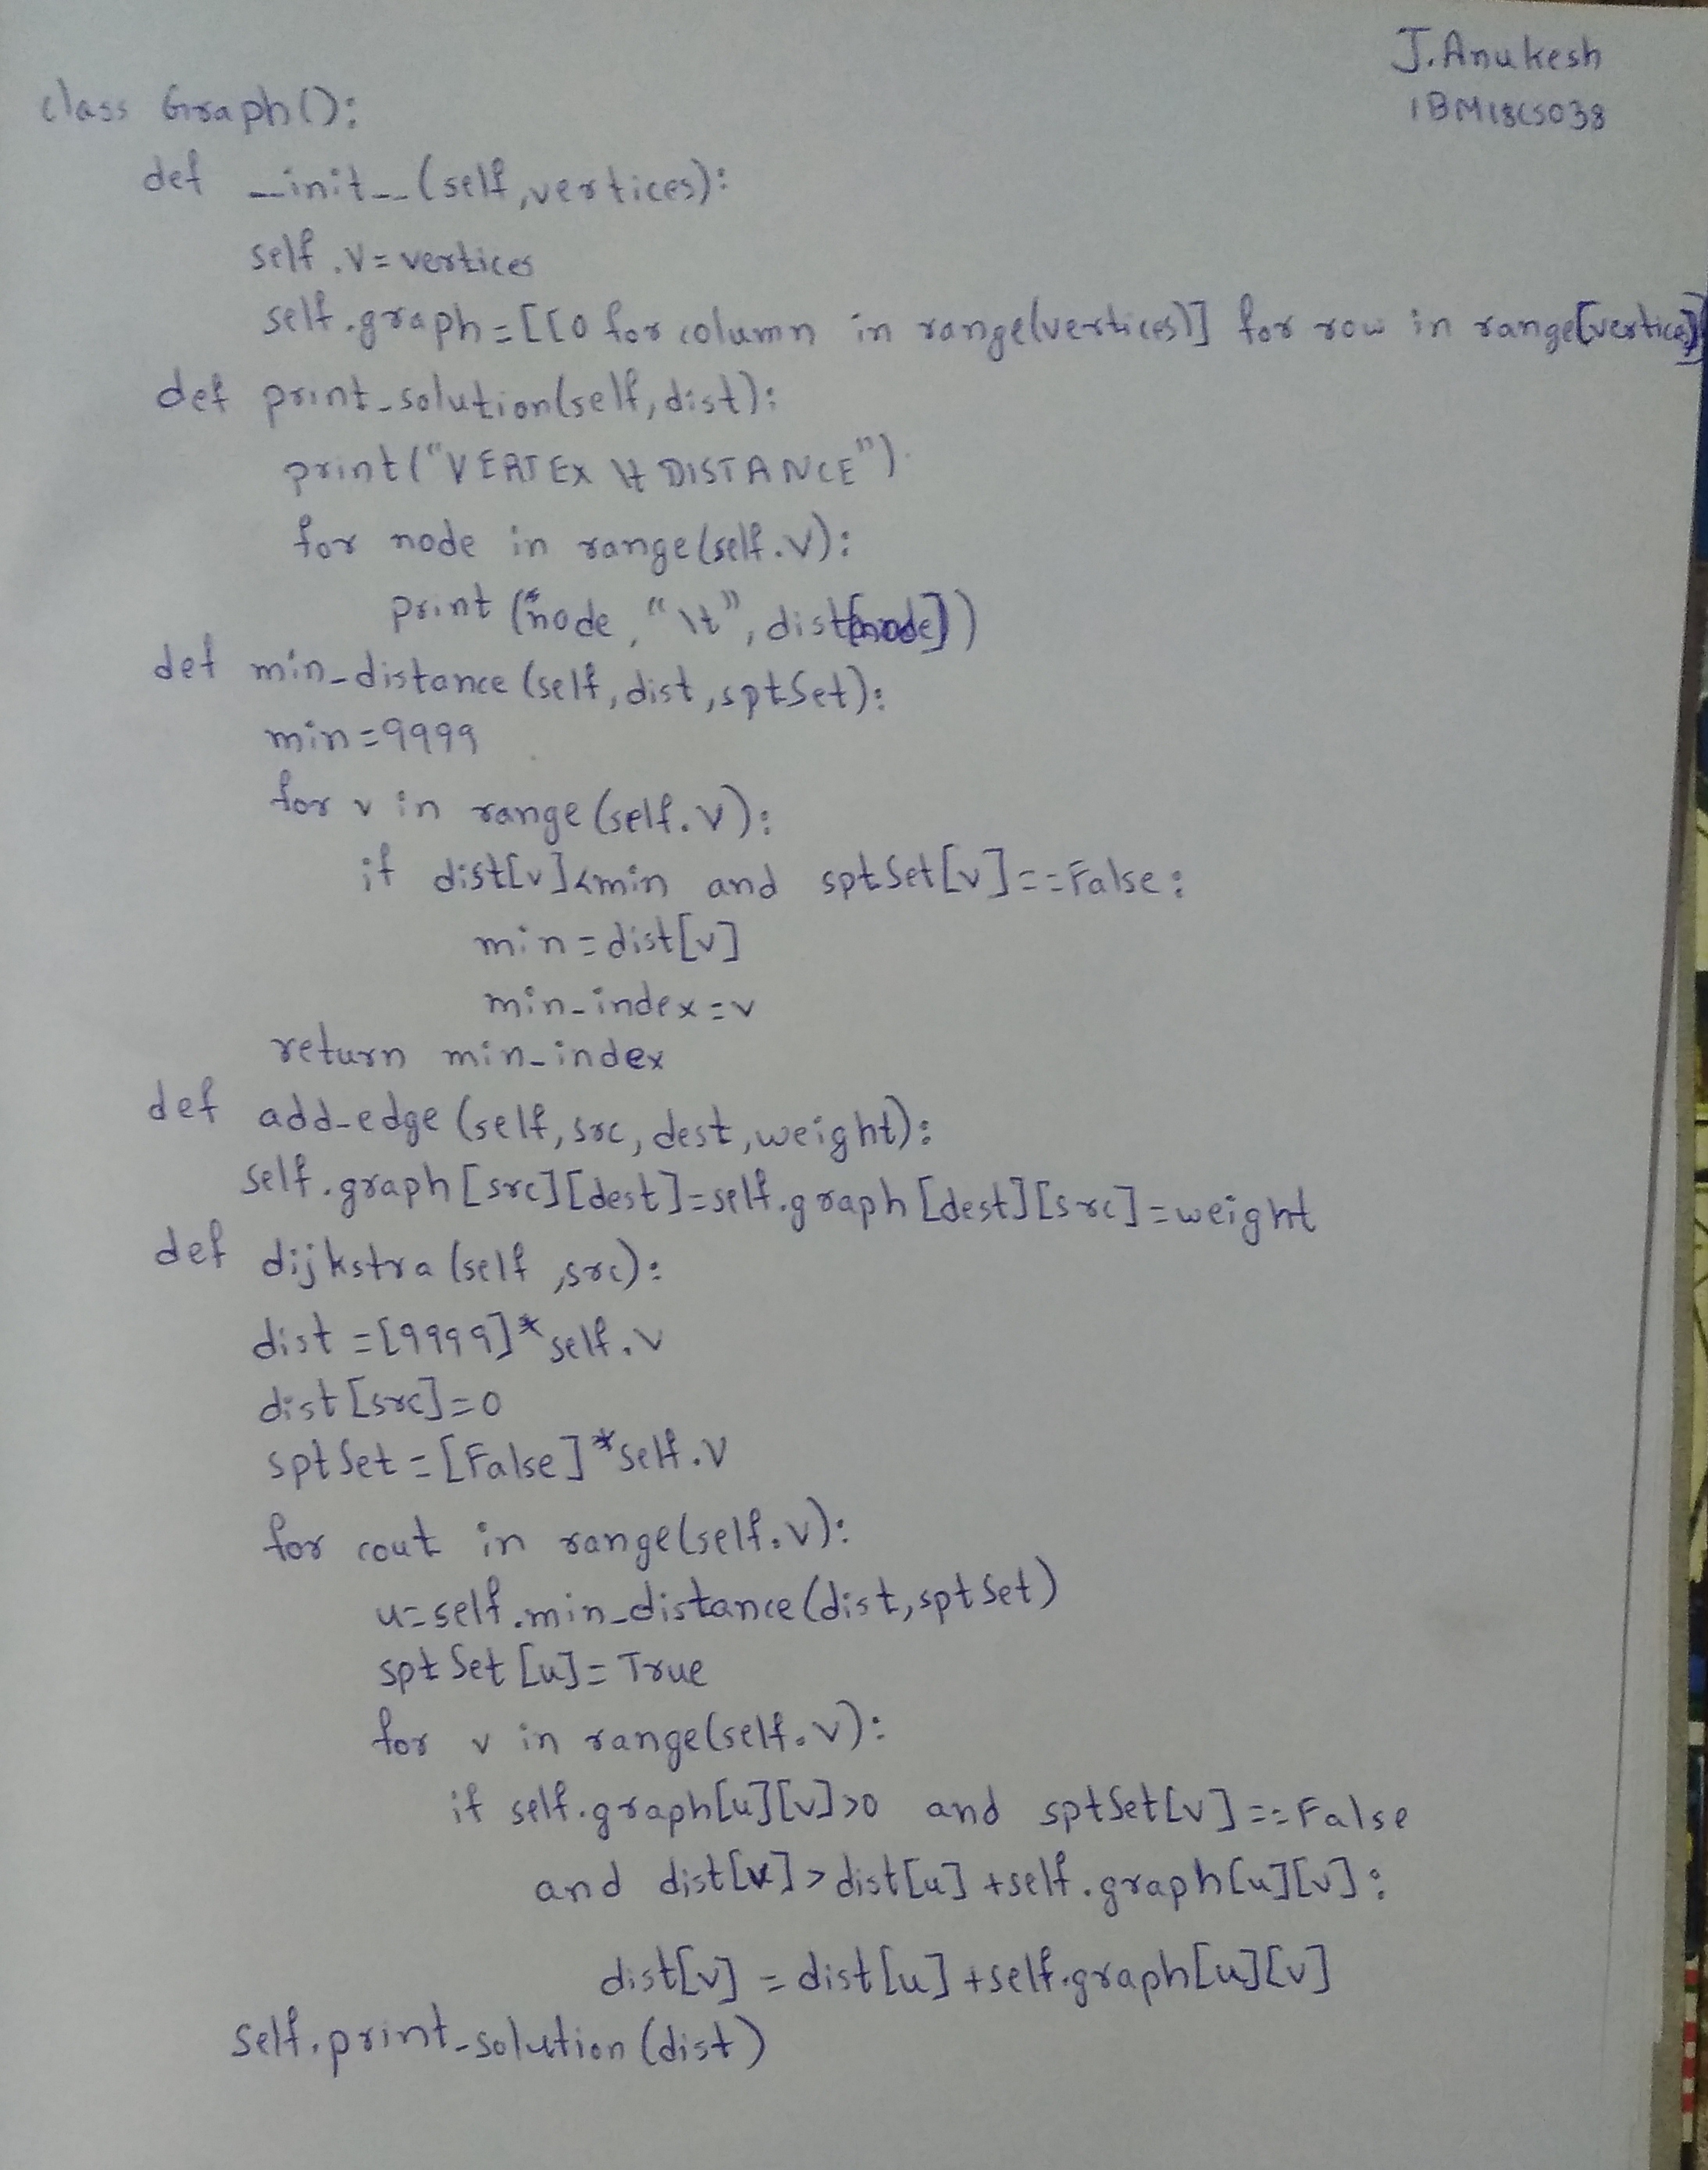 J.Anukesh
1BM18CS038
class Graph():
def __init__(self,vertices):
self.V=vertices
self.graph=[[0 for column in range(vertices)] for row in range(vertices)]
def print_solution(self,dist):
print("VERTEX \t DISTANCE")
for node in range(self.V):
print(node,"\t",dist[node])
def min_distance(self,dist,sptSet):
min=9999
for v in range(self.V):
if dist[v]<min and sptSet[v]==False:
min=dist[v]
min_index=v
return min_index
def add_edge(self,src,dest,weight):
self.graph[src][dest]=self.graph[dest][src]=weight
def dijkstra(self,src):
dist=[9999]*self.V
dist[src]=0
sptSet=[False]*self.V
for cout in range(self.V):
u=self.min_distance(dist,sptSet)
sptSet[u]=True
for v in range(self.V):
if self.graph[u][v]>0 and sptSet[v]==False
and dist[v]>dist[u]+self.graph[u][v]:
dist[v]=dist[u]+self.graph[u][v]
self.print_solution(dist)